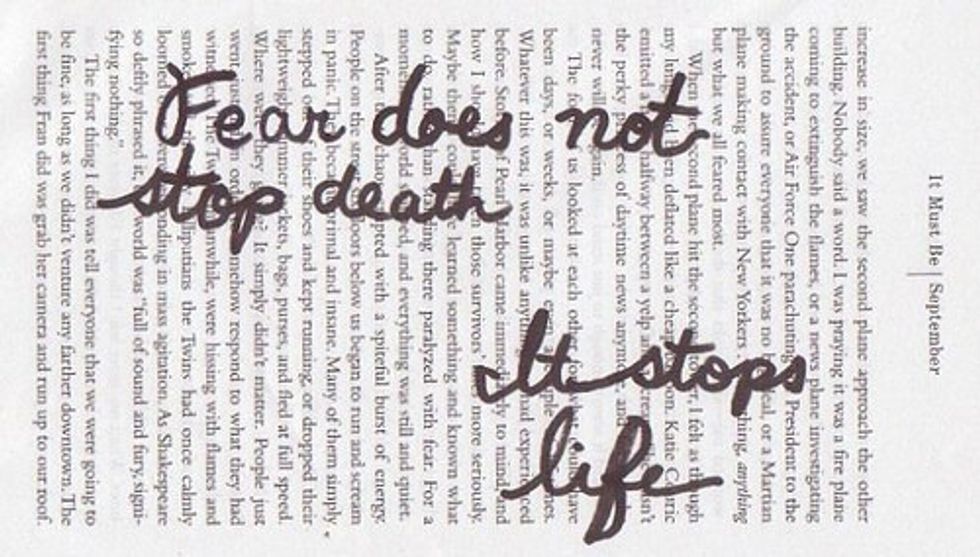 Fear does not
stop death
It stops
life
It Must Be | September
increase in size, we saw the second plane approach the other
building. Nobody said a word. I was praying it was a fire plane
coming to extinguish the flames, or a news plane investigating
the accident, or Air Force One parachuting President to the
ground to assure everyone that it was no deal, or a Martian
plane making contact with New Yorkers anything
but what we all feared most.
When second plane hit the I felt as though
my deflated like a Katie
emitted a halfway between a yelp
the perky of daytime news
never will
The us looked at each other have
been days, or weeks, or maybe
Whatever this was, it was unlike experienced
before. of Pearl Harbor came to mind, and
how I those survivors' more seriously.
Maybe learned something and known what
to do, than there paralyzed with fear. For a
moment, world and everything was still and quiet.
After with a spiteful burst of energy.
People on the floors below us began to run and scream
in panic. and insane. Many of them simply
stepped of their shoes and kept running, or dropped their
lightweight bags, purses, and fled at full speed.
Where were they It simply didn't matter. People just
went respond to what they had
were hissing with flames and
smoke the Twins had once calmly
loomed in mass agitation. As Shakespeare
so deftly phrased it, world was "full of sound and fury, signi-
fying nothing."
The first thing I did was tell everyone that we were going to
be fine, as long as we didn't venture any farther downtown. The
first thing Fran did was grab her camera and run up to our roof.